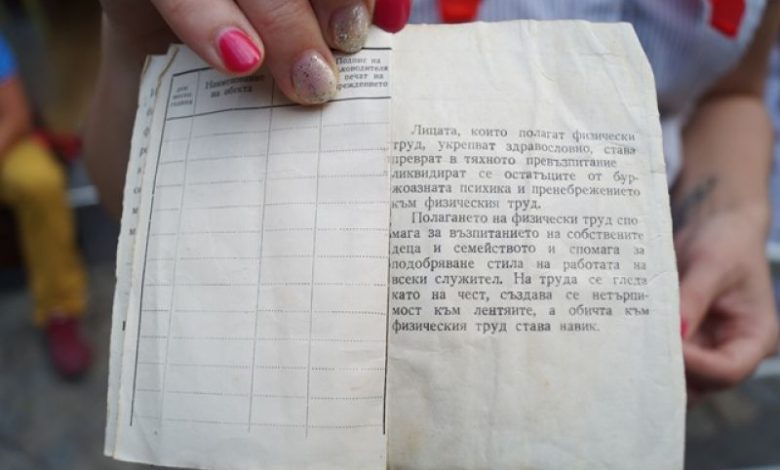 ден
месец
година
Наименование
на обекта
Подпис на
печат на
Лицата, които полагат физически
труд, укрепват здравословно, става
преврат в тяхното превъзпитание
ликвидират се остатъците от бур-
жоазната психика и пренебрежението
към физическия труд.
Полагането на физически труд спо-
мага за възпитанието на собствените
деца и семейството и спомага за
подобряване стила на работата на
всеки служител. На труда се гледа
като на чест, създава се нетърпи-
мост към лентяйте, а обичта към
физическия труд става навик.